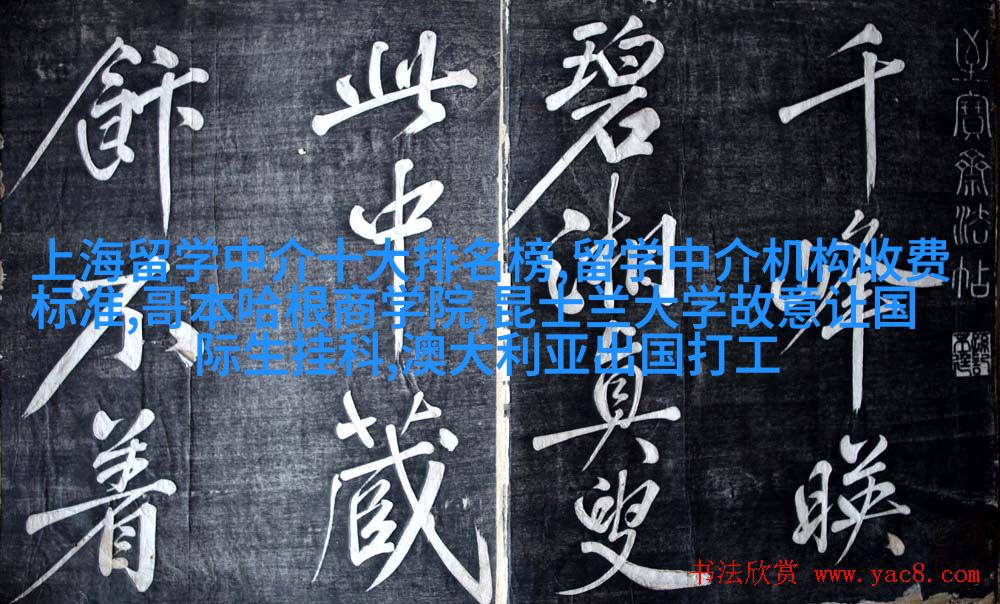 千峰暎
碧湖真叟
此中藏
飰不着
上海留学中介十大排名榜,留学中介机构收费
标准,哥本哈根商学院,昆士兰大学故意让国
际生挂科,澳大利亚出国打工
书法欣赏 www.yac8.com